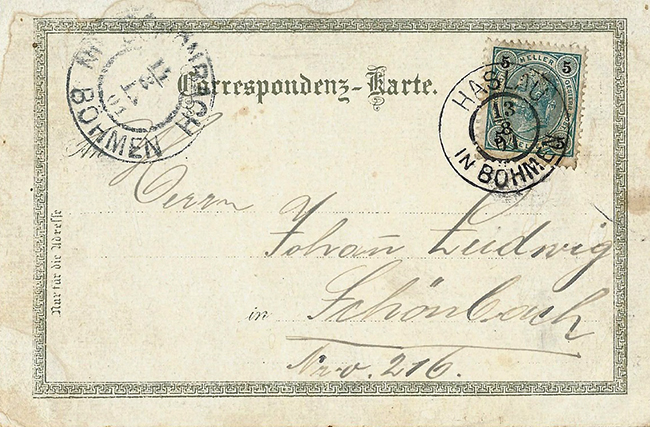 Correspondenz-Karte.
5 HELLER 5
HASLAU
13
8
01
IN BÖHMEN
SCHÖNBACH
IN BÖHMEN
An
Herrn
Johan̄ Zeidwig
in Schönbach
Nro. 216.
Nur für die Adresse